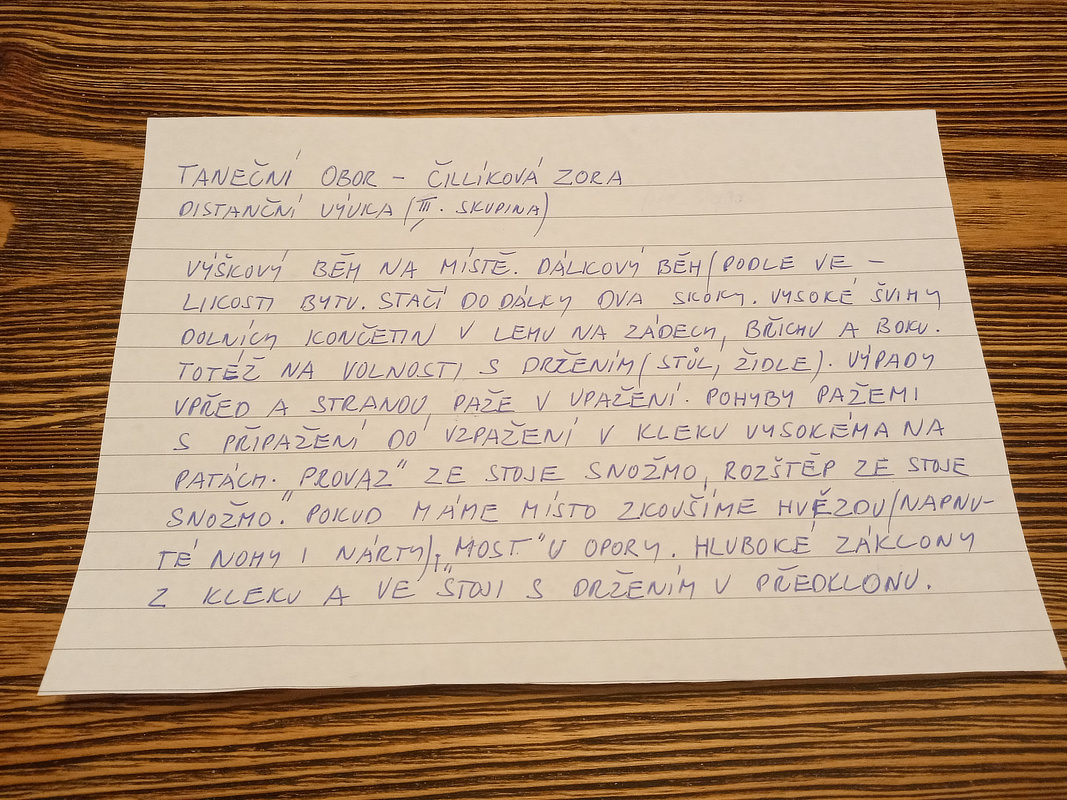 TANEČNÍ OBOR – ČILLÍKOVÁ ZORA
DISTANČNÍ VÝUKA (III. SKUPINA)
VÝŠKOVÝ BĚH NA MÍSTĚ. DÁLKOVÝ BĚH (PODLE VE –
LIKOSTI BYTU. STAČÍ DO DÁLKY DVA SKOKY. VYSOKÉ ŠVIHY
DOLNÍCH KONČETIN V LEHU NA ZÁDECH, BŘICHU A BOKU.
TOTÉŽ NA VOLNOSTI S DRŽENÍM (STŮL, ŽIDLE). VÝPADY
VPŘED A STRANOU, PAŽE V UPAŽENÍ. POHYBY PAŽEMI
S PŘIPAŽENÍ DO VZPAŽENÍ V KLEKU VYSOKÉM A NA
PATÁCH. „PROVAZ" ZE STOJE SNOŽMO, ROZŠTĚP ZE STOJE
SNOŽMO. POKUD MÁME MÍSTO ZKOUŠÍME HVĚZDU (NAPNU-
TÉ NOHY I NÁRTY), „MOST" U OPORY. HLUBOKÉ ZÁKLONY
Z KLEKU A VE STOJI S DRŽENÍM V PŘEDKLONU.